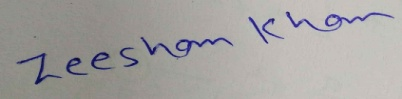 Zeeshan Khan